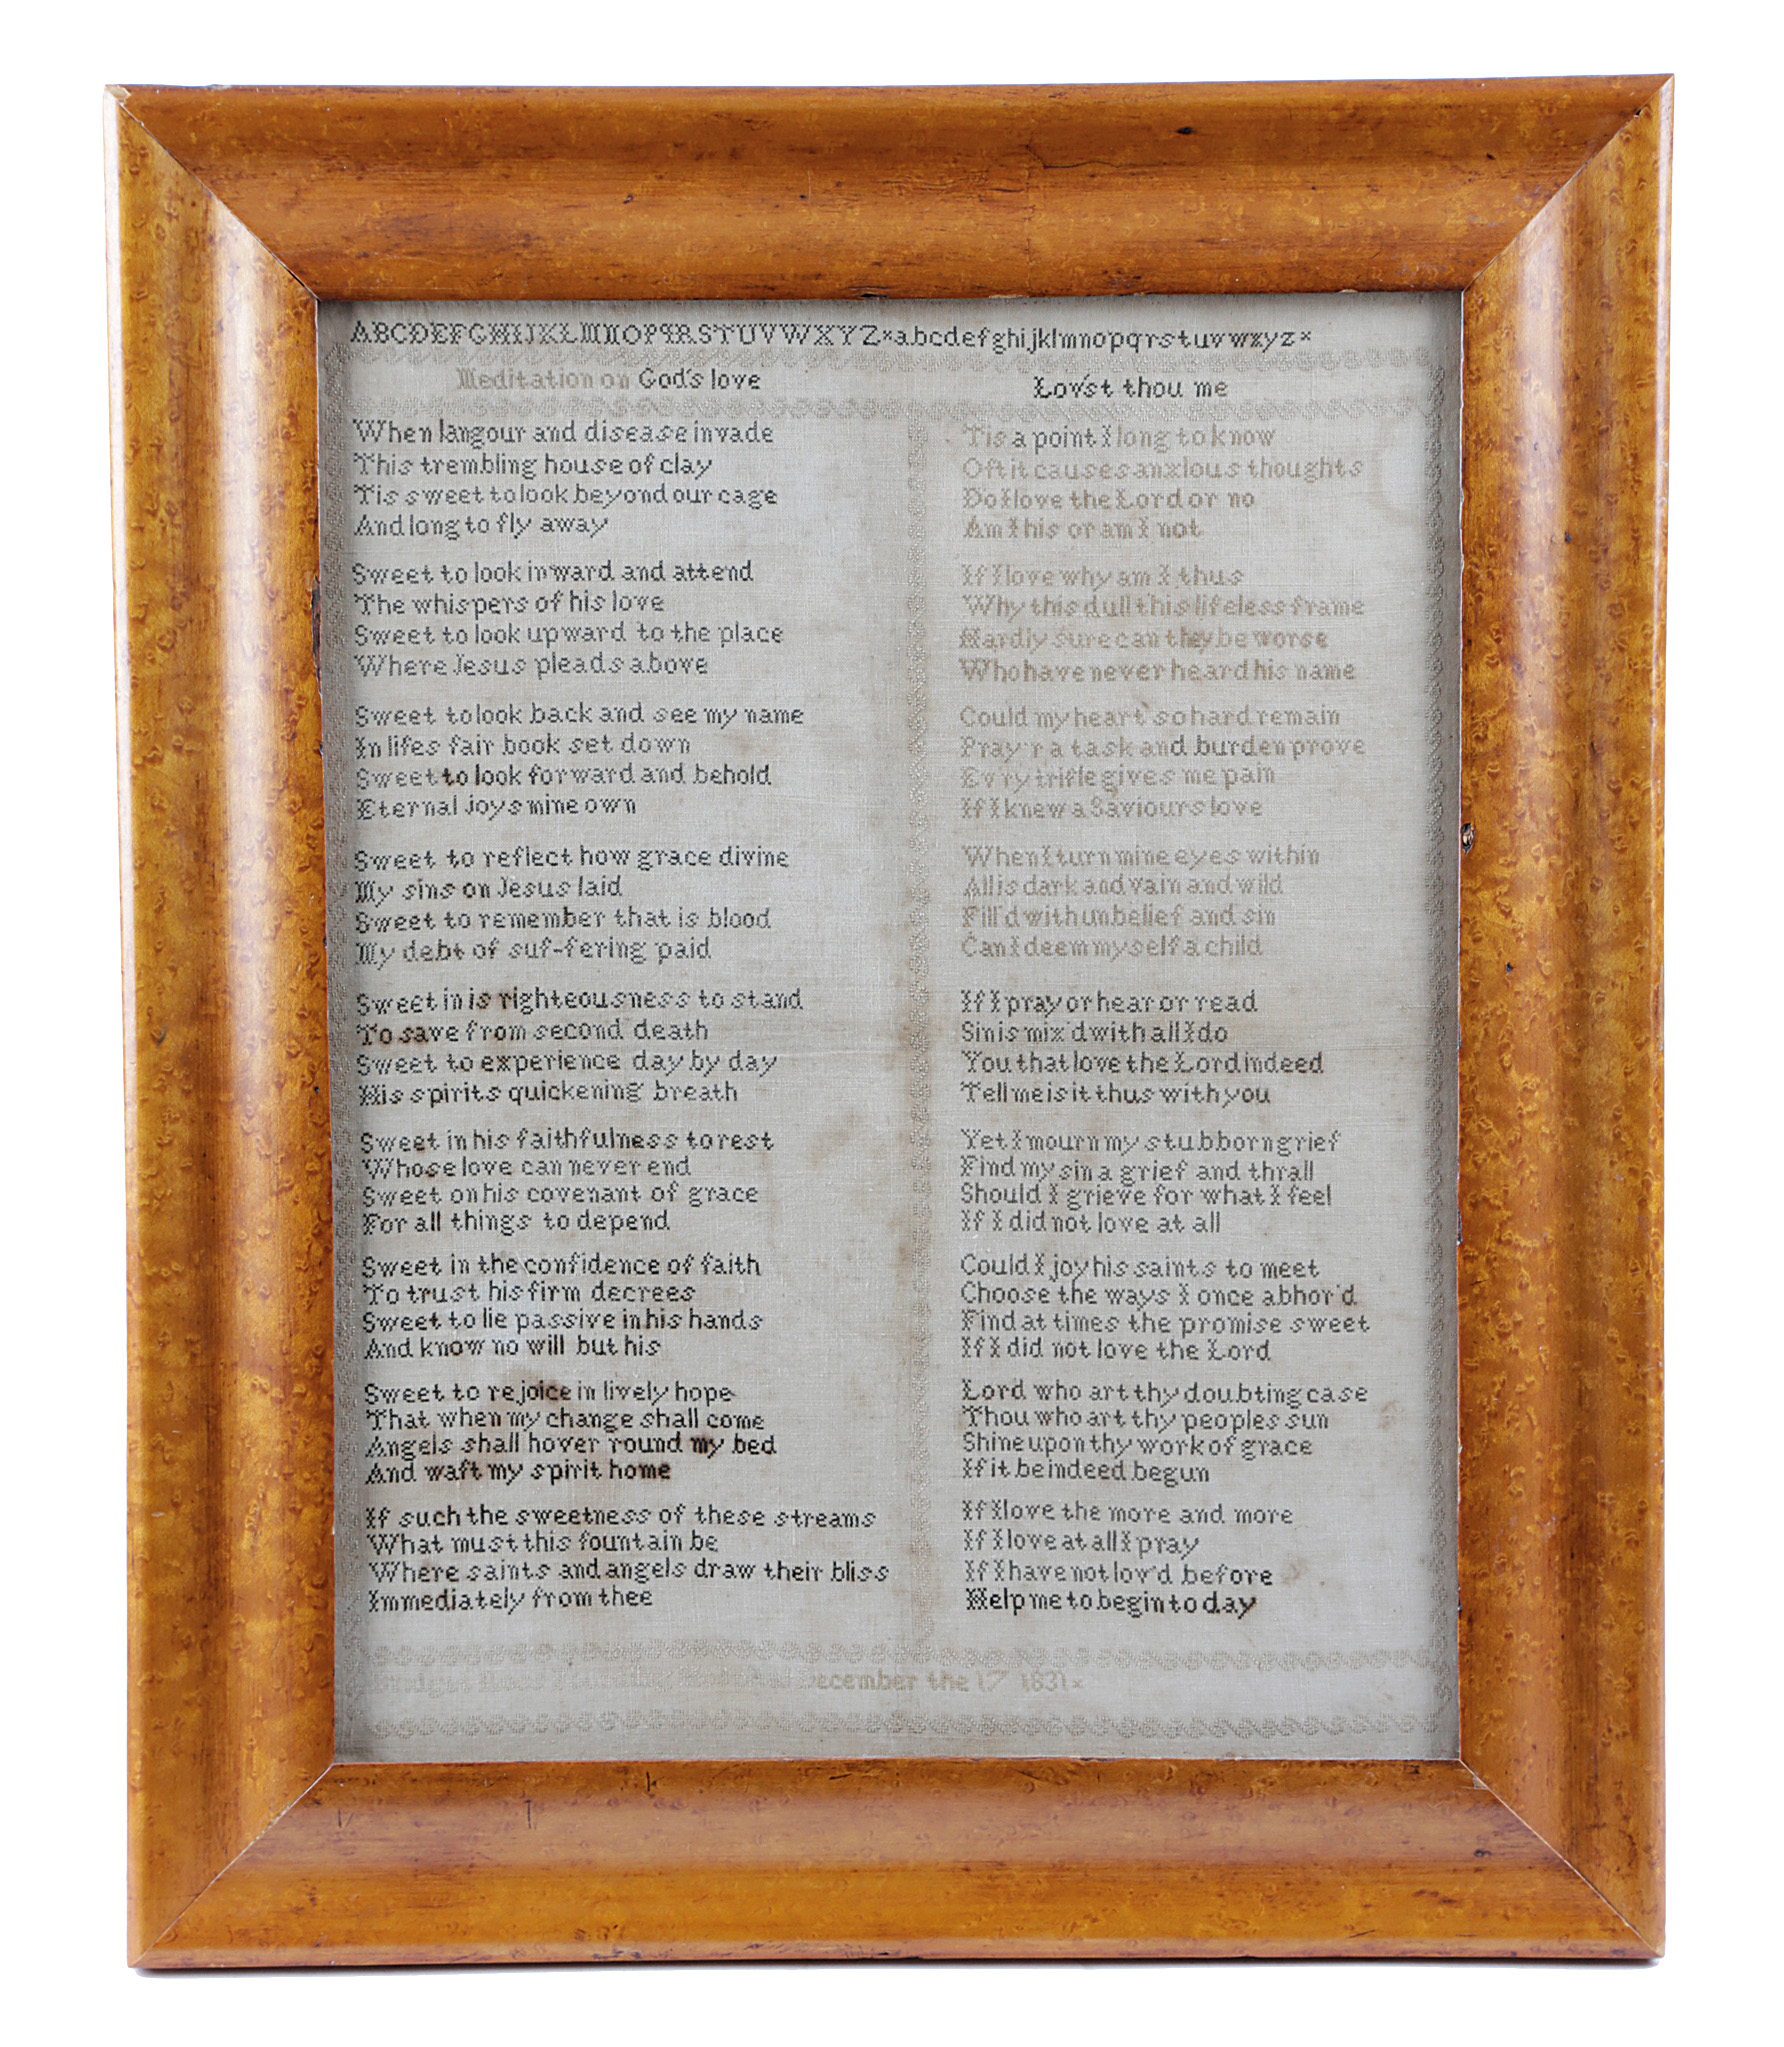 ABCDEFGHIJKLMNOPQRSTUVWXYZ×abcdefghijklmnopqrstuvwxyz×
Meditation on God's love
When langour and disease invade
This trembling house of clay
Tis sweet to look beyond our cage
And long to fly away
Sweet to look inward and attend
The whispers of his love
Sweet to look upward to the place
Where Jesus pleads above
Sweet to look back and see my name
In lifes fair book set down
Sweet to look forward and behold
Eternal joys mine own
Sweet to reflect how grace divine
My sins on Jesus laid
Sweet to remember that is blood
My debt of suf-fering paid
Sweet in is righteousness to stand
To save from second death
Sweet to experience day by day
His spirits quickening breath
Sweet in his faithfulness to rest
Whose love can never end
Sweet on his covenant of grace
For all things to depend
Sweet in the confidence of faith
To trust his firm decrees
Sweet to lie passive in his hands
And know no will but his
Sweet to rejoice in lively hope
That when my change shall come
Angels shall hover round my bed
And waft my spirit home
If such the sweetness of these streams
What must this fountain be
Where saints and angels draw their bliss
Immediately from thee
Lov'st thou me
Tis a point I long to know
Oft it causes anxious thoughts
Do I love the Lord or no
Am I his or am I not
If I love why am I thus
Why this dull this lifeless frame
Hardly Sure can they be worse
Who have never heard his name
Could my heart so hard remain
Pray'r a task and burden prove
Ev'ry trifle gives me pain
If I knew a Saviours love
When I turn mine eyes within
All is dark and vain and wild
Fill'd with unbelief and sin
Can I deem myself a child
If I pray or hear or read
Sin is mix'd with all I do
You that love the Lord indeed
Tell me is it thus with you
Yet I mourn my stubborn grief
Find my sin a grief and thrall
Should I grieve for what I feel
If I did not love at all
Could I joy his saints to meet
Choose the ways I once abhor'd
Find at times the promise sweet
If I did not love the Lord
Lord who art thy doubting case
Thou who art thy peoples sun
Shine upon thy work of grace
If it be indeed begun
If I love the more and more
If I love at all I pray
If I have not lov'd before
Help me to begin to day
December the 17 1831×